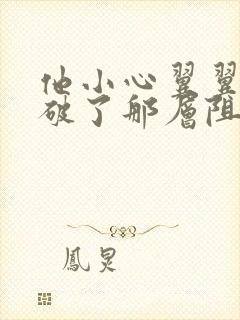 他小心翼翼
破了那层阻
鳳炅